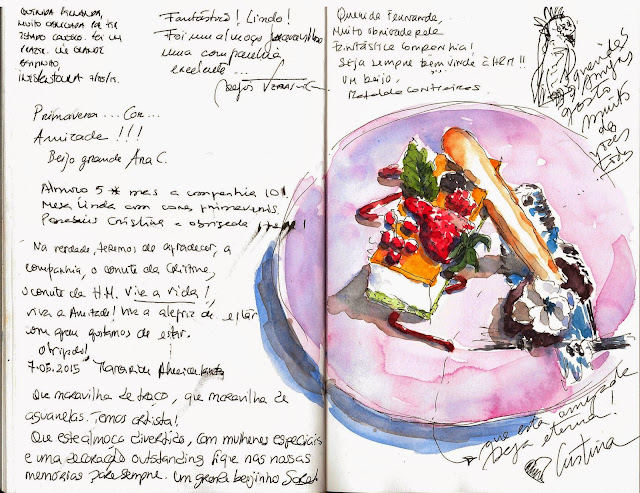 QUERIDA FERNANDA,
MUITO OBRIGADA POR TER
FOI UM
PRAZER. UM GRANDE
7/05/15
Fantástico! Lindo!
Foi um almoço
uma companhia
excelente...
Primavera... Cor...
Amizade!!!
Beijo grande Ana C.
Almoço 5* mas a companhia 10!
Mesa linda com cores primaveris.
Parabéns Cristina e obrigada
Na verdade, teremos de agradecer, a
companhia, o convite da Cristina,
o convite da H.M. Viva a vida!,
viva a Amizade! Viva a alegria de estar
com quem gostamos de estar.
Obrigada!
7.05.2015 Margarida Almeida
Que maravilha de traço, que maravilha de
aguarelas. Temos artista!
Que este almoço divertido, com mulheres especiais
e uma decoração outstanding fique nas nossas
memórias para sempre. Um grande beijinho
Querida Fernanda,
Muito obrigada pela
Fantástica companhia!
Seja sempre bem vinda à HRM!!
Um beijo,
Mafalda Contreiras
queridas
amigas
gosto
muito
de
vocês
todas
que esta amizade
seja eterna!
Cristina